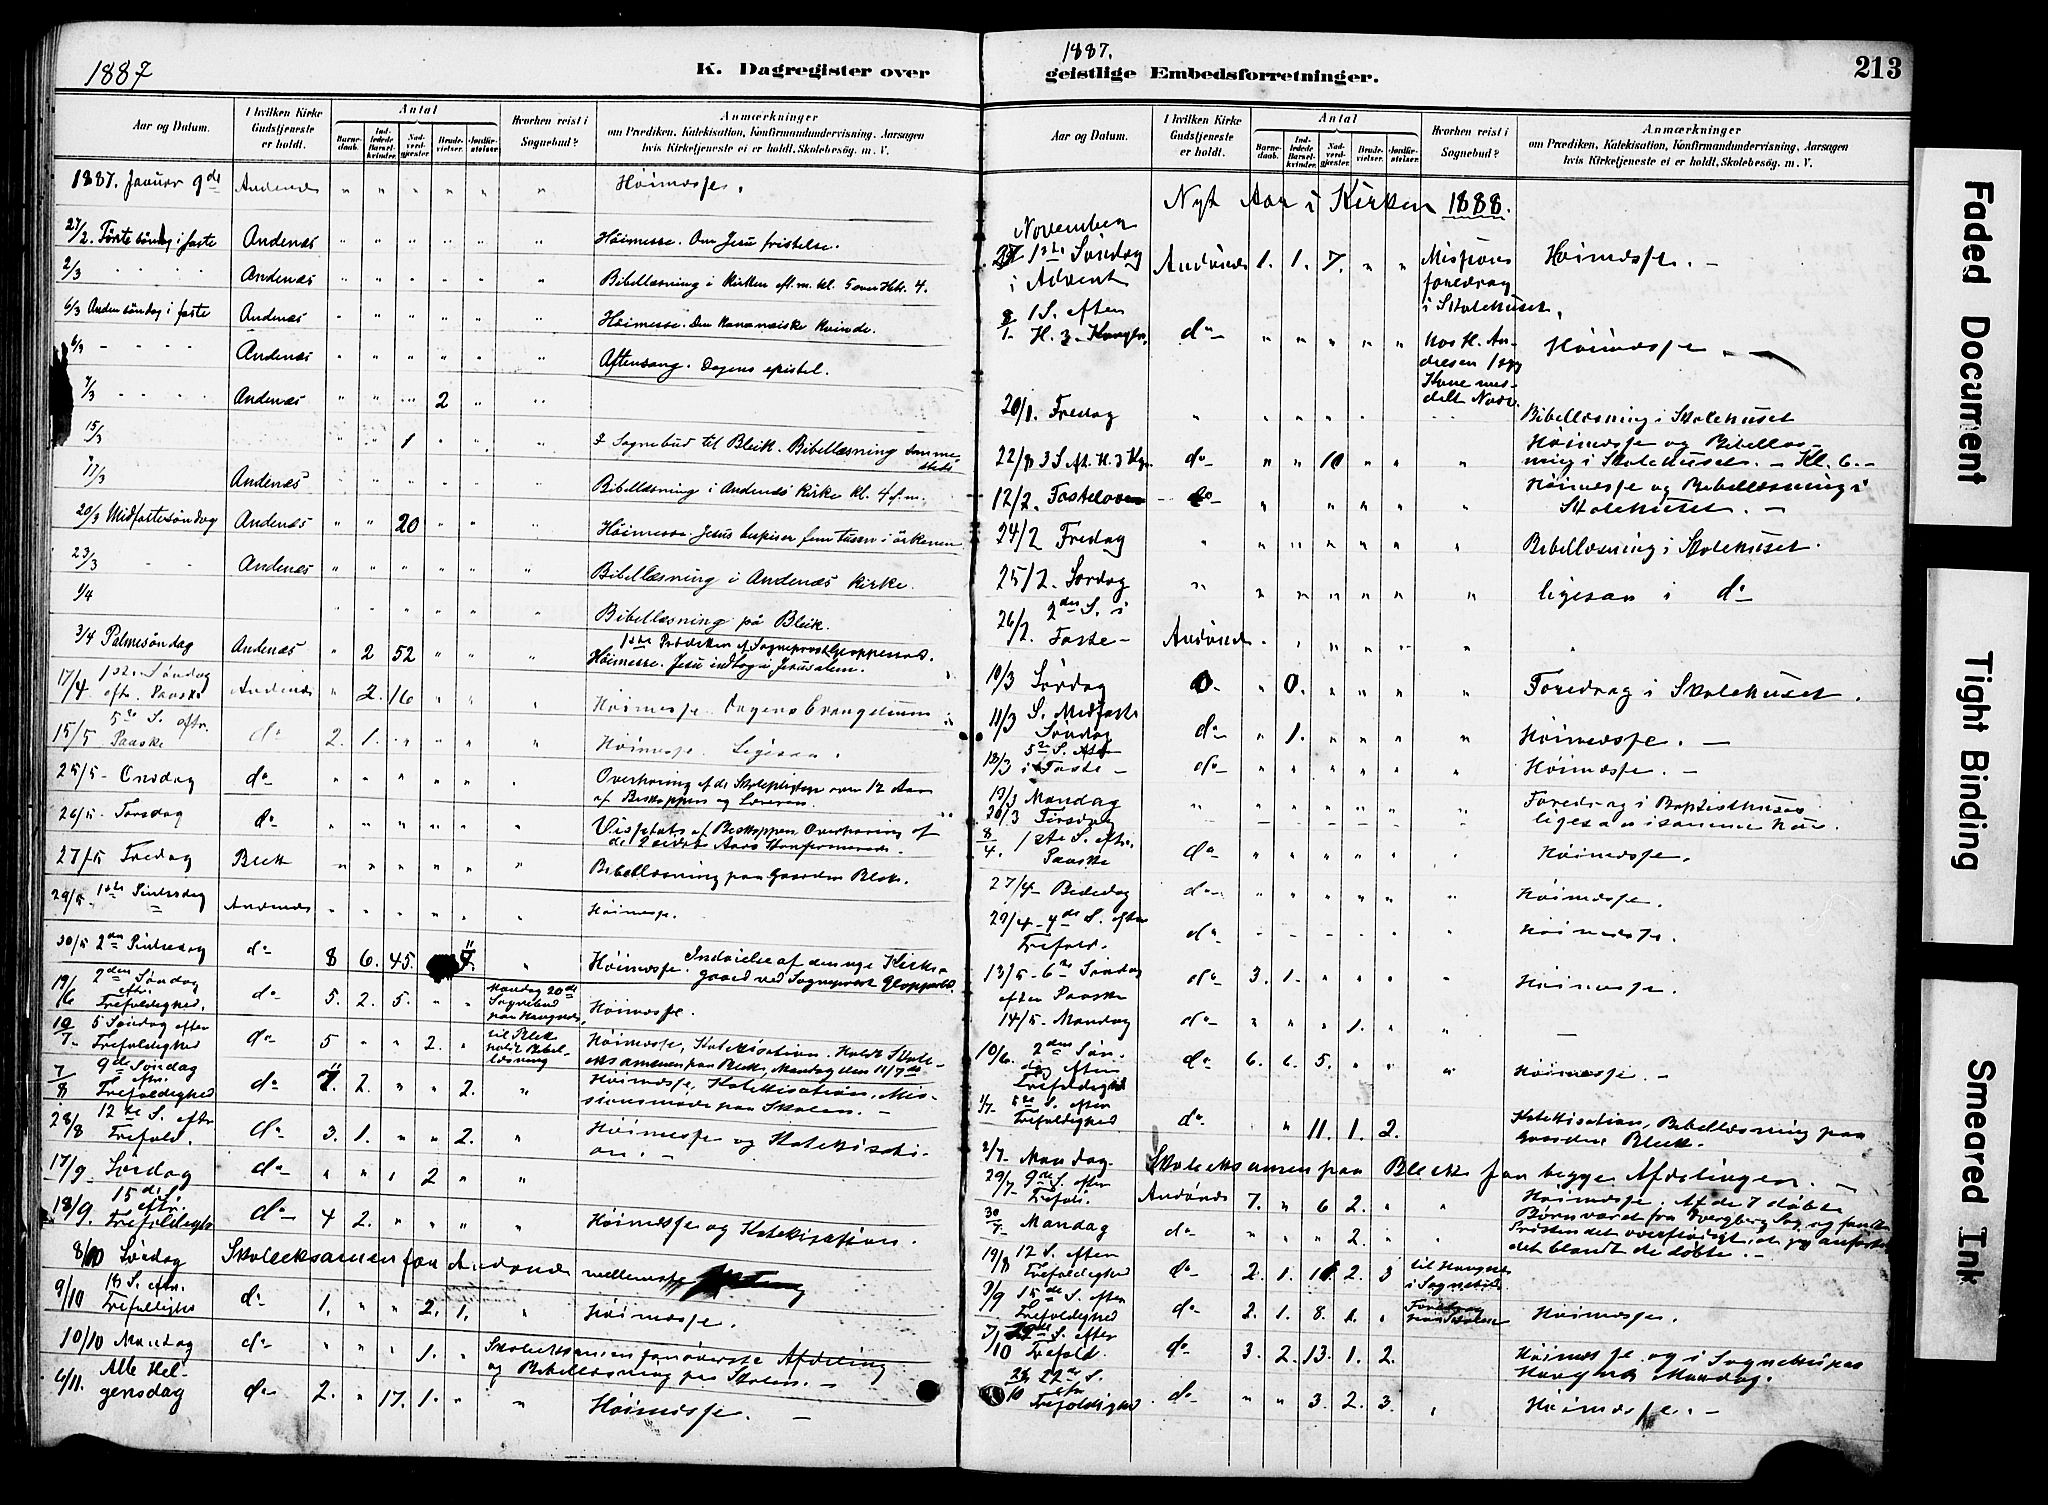 1887
K. Dagregister over
Aar og Datum.
I hvilken Kirke Gudstjeneste er holdt.
Antal
Barne-daab.
Ind-ledede Barsel-kvinder.
Nad-verd-gjester.
Brude-vielser.
Jordfæ-stelser.
Hvorhen reist i Sognebud?
Anmærkninger
om Prædiken, Katekisation, Konfirmandundervisning, Aarsagen
hvis Kirketjeneste ei er holdt, Skolebesög. m. V.
1887. Januar 9de Andenæs " " " " " " Höimesse.
27/2. Förste söndag i faste Andenæs " " " " " " Höimesse. Om Jesu fristelse.
2/3 " " " Andenæs " " " " " " Bibellæsning i Kirken eft.m. kl. 5 over Heb. 4.
6/3 Anden söndag i faste Andenæs " " " " " " Höimesse. Den kananæiske kvinde.
6/3 - - - Andenæs " " " " " " Aftensang. Dagens epistel.
7/3 - - - Andenæs " " " 2 " "
15/3 " " 1 " " " I Sognebud til Bleik. Bibellæsning samme-
steds
17/3 Andenæs " " " " " " Bibellæsning i Andenæs kirke kl. 4 e.m.
20/3 Midfastesöndag Andenæs " " 20 " " " Höimesse. Jesus bespiser fem tusen i örkenen
23/3 - - Andenæs " " " " " " Bibellæsning i Andenæs Kirke.
1/4 " " " " " " Bibellæsning på Bleik.
3/4 Palmesöndag Andenæs " 2 52 " " " Höimesse. Jesu indtog i Jerusalem.
17/4 1ste Söndag eft. Paaske Andenæs " 2. 16 " " " Höimesse. Dagens Evangelium
15/5 5te S. eftr. Paaske do 2. 1. " " " " Höimesse. Ligesaa.
25/5- Onsdag do " " " " " "
Overhöring af de Skolepligtige over 12 Aar
af Biskoppen og Læreren.
26/5- Torsdag do " " " " " "
Visitats af Biskoppen Overhöring af
de 2 sidste Aars Konfirmerede.
27/5 Fredag Bleik " " " " " " Bibellæsning paa Gaarden Bleik.
29/5- 1ste Pintsedag Andenæs " " " " " " Höimesse.
30/5 2den Pintsedag do 8 6. 45. 7. "
Höimesse. Indvielse af den nye Kirke-
gaard ved Sogneprest Gloppestad.
19/6 2den Söndag eftr. Trefoldighed. do 5. 2. 5. " "
Mandag 20de Sognebud paa Haugnes.
Höimesse.
10/7. 5 Söndag efter Trefoldighed do 5 " " 2. "
til Bleik holdt Bibel-læsning
Höimesse, Katekisation. Holdt Skole-
eksamen paa Bleik, Mandag den 11/7de
7/8 9de Söndag eftr. Trefoldighed do 7. 2. " " 2. "
Höimesse, Katekisation, Mis-
sionsmöde paa Skolen. -
28/8 12te S. eftr Trefold. do 3. 1. " " 2. "
Höimesse og Katekisati-
on. -
17/9. Lördag do " " " 2 " "
18/9. 15de eftr. Trefoldighe do 4 2. " " " " Höimesse og Katekisation.
8/10 Lördag Skoleeksamen for Andenæs
9/10 18 S. eftr. Trefoldighe do 1. " " 2. 1. " Höimesse.
10/10 Mandag do " " " 1. "
Skoleeksamen for överste Afdeling
og Bibellæsning paa Skolen. -
6/11. Alle Hel-gensdag do 2. " 17. 1. " " Höimesse. -
1887.
geistlige Embedsforretninger.
213
Aar og Datum.
I hvilken Kirke Gudstjeneste er holdt.
Antal
Barne-daab.
Ind-ledede Barsel-kvinder.
Nad-verd-gjester.
Brude-vielser.
Jordfæ-stelser.
Hvorhen reist i Sognebud?
Anmærkninger
om Prædiken, Katekisation, Konfirmandundervisning, Aarsagen
hvis Kirketjeneste ei er holdt, Skolebesög. m. V.
Nyt Aar i Kirken 1888.
November
27 1ste Söndag i Advent Andenæs 1. 1. 7. " "
Missions foredrag i Skolehuset.
Höimesse. -
8/1. 1 S. efter H. 3. Konger. do " " " " "
hos H. An-dresen syg Kone med-delt Nadv.
Höimesse.
20/1. Fredag " " " " " " Bibellæsning i Skolehuset
22/1 3 S. eft. H. 3 Kgr. do " " 10 " " "
Höimesse og Bibellæs-
ning i Skolehuset. - Kl. 6. -
12/2. Fastelavn do " " " " " "
Höimesse og Bibellæsning i
Skolehuset. -
24/2 Fredag " " " " " " Bibellæsning i Skolehuset.
25/2. Lördag " " " " " " ligesaa i do
26/2. 2den S. i Faste - Andenæs " " " " " "
10/3 Lördag " 0. " " " " Foredrag i Skolehuset.
11/3 S. Midfaste Söndag do " 1. " " " " Höimesse. -
18/3 5te S. i Faste - do " " " " " " Höimesse. -
19/3 Mandag " " " " " " Foredrag i Baptisthuset
20/3 Tirsdag - - - - - ligesaa i samme Hus.
8/4. 1ste S. eftr. Paaske do " " " " " " Höimesse.
27/4- Bededag do " " " " " " Höimesse.
29/4- 4de S. efter Trefold. do - - - - - Höimesse.
13/5- 6te Söndag efter Paaske do 3. 1. " " " " Höimesse.
14/5- Mandag do " " " 1. " " -
10/6. 2den Sön-dag efter Trefoldighed do 6. 6. 5. " " " Höimesse. -
1/7- 5te S. efter Trefoldighed. do " " 11. 1. 2.
Katekisation, Bibellæsning paa
Gaarden Bleik.
2/7- Mandag. Skoleeksamen paa Bleik for begge Afdelinger. -
29/7- 9de S. efter Trefold. Andenæs 7. " 6 2. " "
Höimesse. Af de 7 döbte
Börn
30/7. Mandag do " " " 2. " "
det blandt de döbte. -
19/8 12 S. efter Trefoldighed do 2. 1. 2. 3
til Haugnes i Sognebud
9/9 15de S. efter Trefoldighed do 2. 1. 8. 1. "
Foredrag paa Skolen
Höimesse.
7/10 S. efter Trefold. do 3. 2. 13. 1. 2.
Höimesse og i Sognebud paa
Haugnes Mandag.
28/10 22de S. eftr Trefoldighed do " " 3. 2. 3. " Höimesse. -
Faded Document
Tight Binding
Smeared Ink